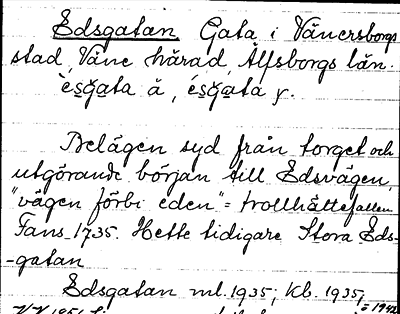 Edsgatan Gata i Vänersborgs
stad, Väne härad, Älfsborgs län.
èsgata ä, ésgata y.
Belägen syd från torget och
utgörande början till Edsvägen,
"vägen förbi eden" = trollhättefallen.
Fans 1735. Hette tidigare Stora Eds-
-gatan
Edsgatan ml. 1935; kb. 1935,
= 1942